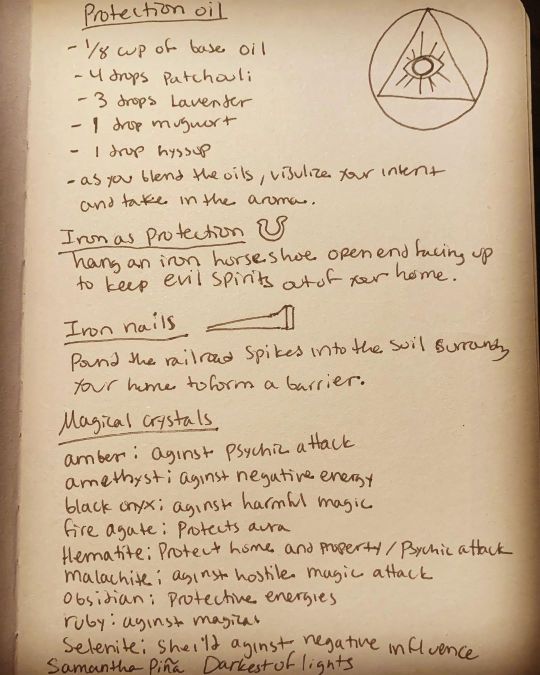 Protection oil
- 1/8 cup of base oil
- 4 drops patchouli
- 3 drops Laventer
- 1 drop mugwort
- 1 drop hyssup
- as you blend the oils, visulize your intent
and take in the aroma.
Iron as protection
hang an iron horseshoe open end facing up
to keep evil spirits out of your home.
Iron nails
Pound the railroad spikes into the soil
your home to form a barrier.
Magical crystals
amber: aginst psychic attack
amethyst: aginst negative energy
black onyx: aginst harmful magic
fire agate: Protects aura
Hematite: Protect home and property/Psychic attack
malachite: aginst hostile magic attack
Obsidian: Protective energies
ruby: aginst magical
Selenite: sheild aginst negative influence
Samantha Piña Darkest of lights